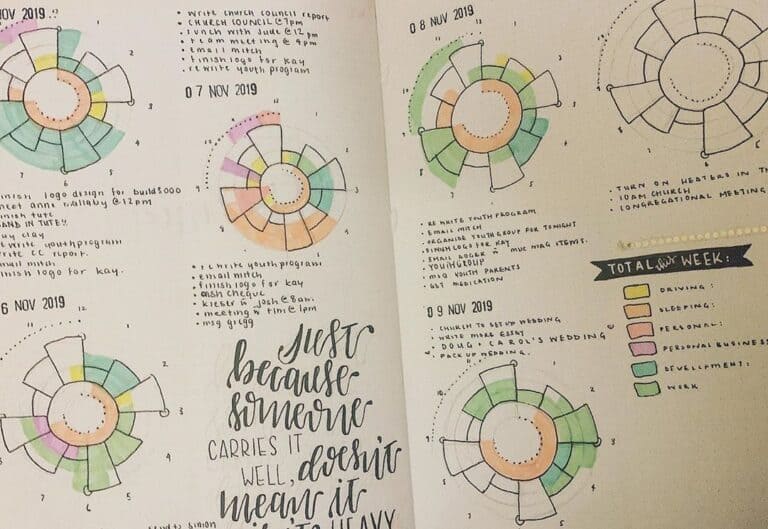 NOV 2019
• write church council report
• CHURCH COUNCIL @ 7pm
• lunch with Jude @ 12 pm
• team meeting @ 4pm
• email mitch
• finish logo for kay
• rewrite youth program
07 NOV 2019
finish logo design for build 5000
meet anne wallaby @ 12pm
finish tute
HAND IN TUTE!!
buy clay
rewrite youth program
write CC report.
email mitch
finish logo for kay.
• rewrite youth program
• email mitch
• finish logo for kay
• cash cheque
• josh @ 8am.
• meeting w tim @ 1pm
• msg gregg
6 NOV 2019
just
because
someone
CARRIES IT
WELL, doesn't
mean it
HEAVY
08 NOV 2019
• REWRITE YOUTH PROGRAM
• EMAIL MITCH
• ORGANISE YOUTH GROUP FOR TONIGHT
• FINISH LOGO FOR KAY
• EMAIL MAG ITEMS.
• YOUTHGROUP
• MSG YOUTH PARENTS
• GET MEDICATION
09 NOV 2019
• CHURCH TO SET UP WEDDING
• WRITE MORE ESSAY
• DOUG + CAROL'S WEDDING
• PACK UP WEDDING.
• TURN ON HEATERS IN
• 10AM CHURCH
• CONGREGATIONAL MEETING
TOTAL this WEEK:
DRIVING:
SLEEPING:
PERSONAL:
PERSONAL BUSINESS
DEVELOPMENT:
WORK